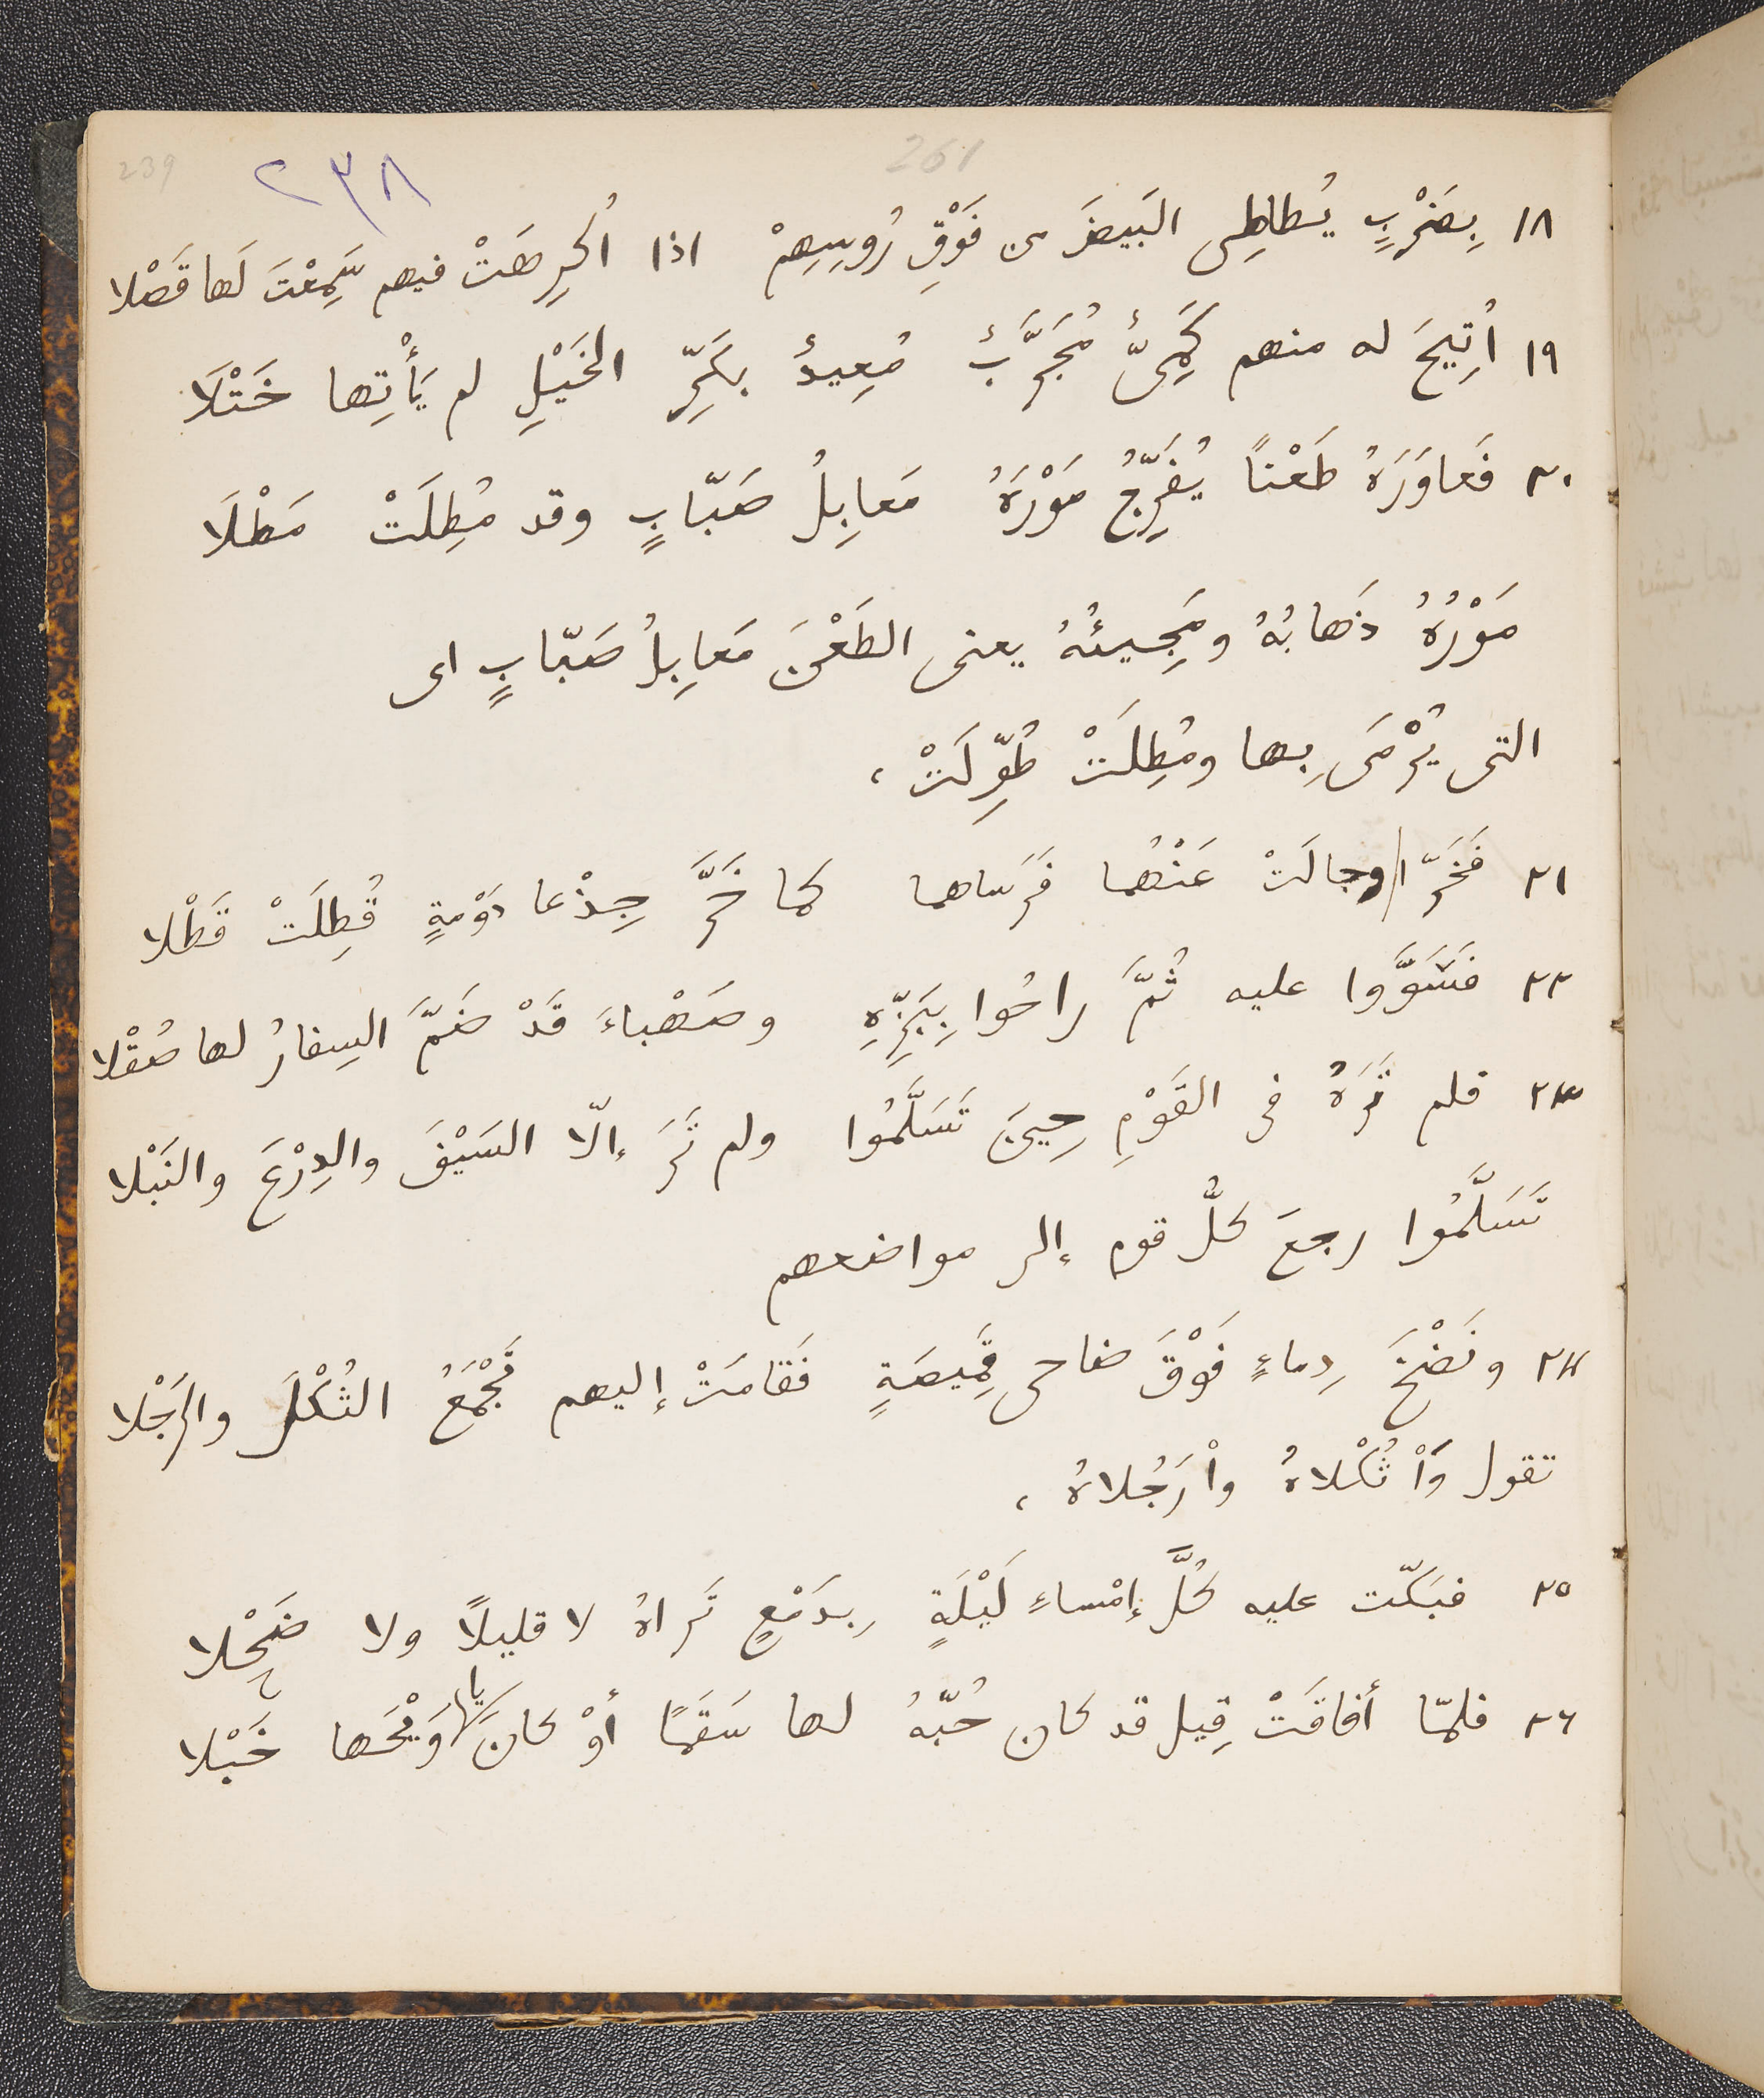 239 ٢٣٨ 261
١٨ بِضَرْبٍ يُطاطِى البَيضَ من فَوْقِ رُوسِهِمْ اذا اُكرِهَتْ فيهم سَمِعْتَ لَها قَصْلا
١٩ اُتِيحَ له منهم كَمِىٌّ مُجَرَّبٌ مُعِيدٌ بكَرِّ الخَيْلِ لم يَأْتِها خَتْلَا
٢٠ فَعاوَرَهُ طَعْناً يُفَرِّجُ مَوْرَهُ مَعابِلُ صَبّابٍ وقد مُطِلَتْ مَطْلَا
مَوْرُهُ ذَهابُهُ ومَجِيئُهُ يعنى الطَعْنَ مَعابِلُ صَبّابٍ اى
التى يُرْمَى بِها ومُطِلَتْ طُوِّلَتْ ،
٢١ فَخَرّا وجالَتْ عَنْهُما فَرَساهما كما خَرَّ جِذْعا دَوْمةٍ قُطِلَتْ قَطْلا
٢٢ فسَوَّوا عليه ثُمَّ راحُوا بِبَزِّهِ وصَهْباءَ قَدْ ضَمَّ السِفارُ لها صُقْلا
٢٣ فلم تَرَهُ فى القَوْمِ حِينَ تَسَلَّمُوا ولم تَرَ إلّا السَيْفَ والدِرْعَ والنَبْلا
تَسَلَّمُوا رجعَ كلُّ قوم إلى مواضعهم
٢٤ ونَضْخَ دِماءٍ فَوْقَ ضاحى قَمِيصَةٍ فَقامَتْ إليهم تَجْمَعُ الثُكْلَ والرَجْلا
تقول وَاْ ثُكْلاهُ واْ رَجُلاهُ ،
٢٥ فبَكّت عليه كُلَّ إمْساءِ لَيْلَةٍ بِدَمْعٍ تَراهُ لا قليلًا ولا ضَحْلا
٢٦ فلمّا أفاقَتْ قِيل قد كان حُبّهُ لها سَقَمًا أوْ كانَ يا وَيْحَها خَبْلا